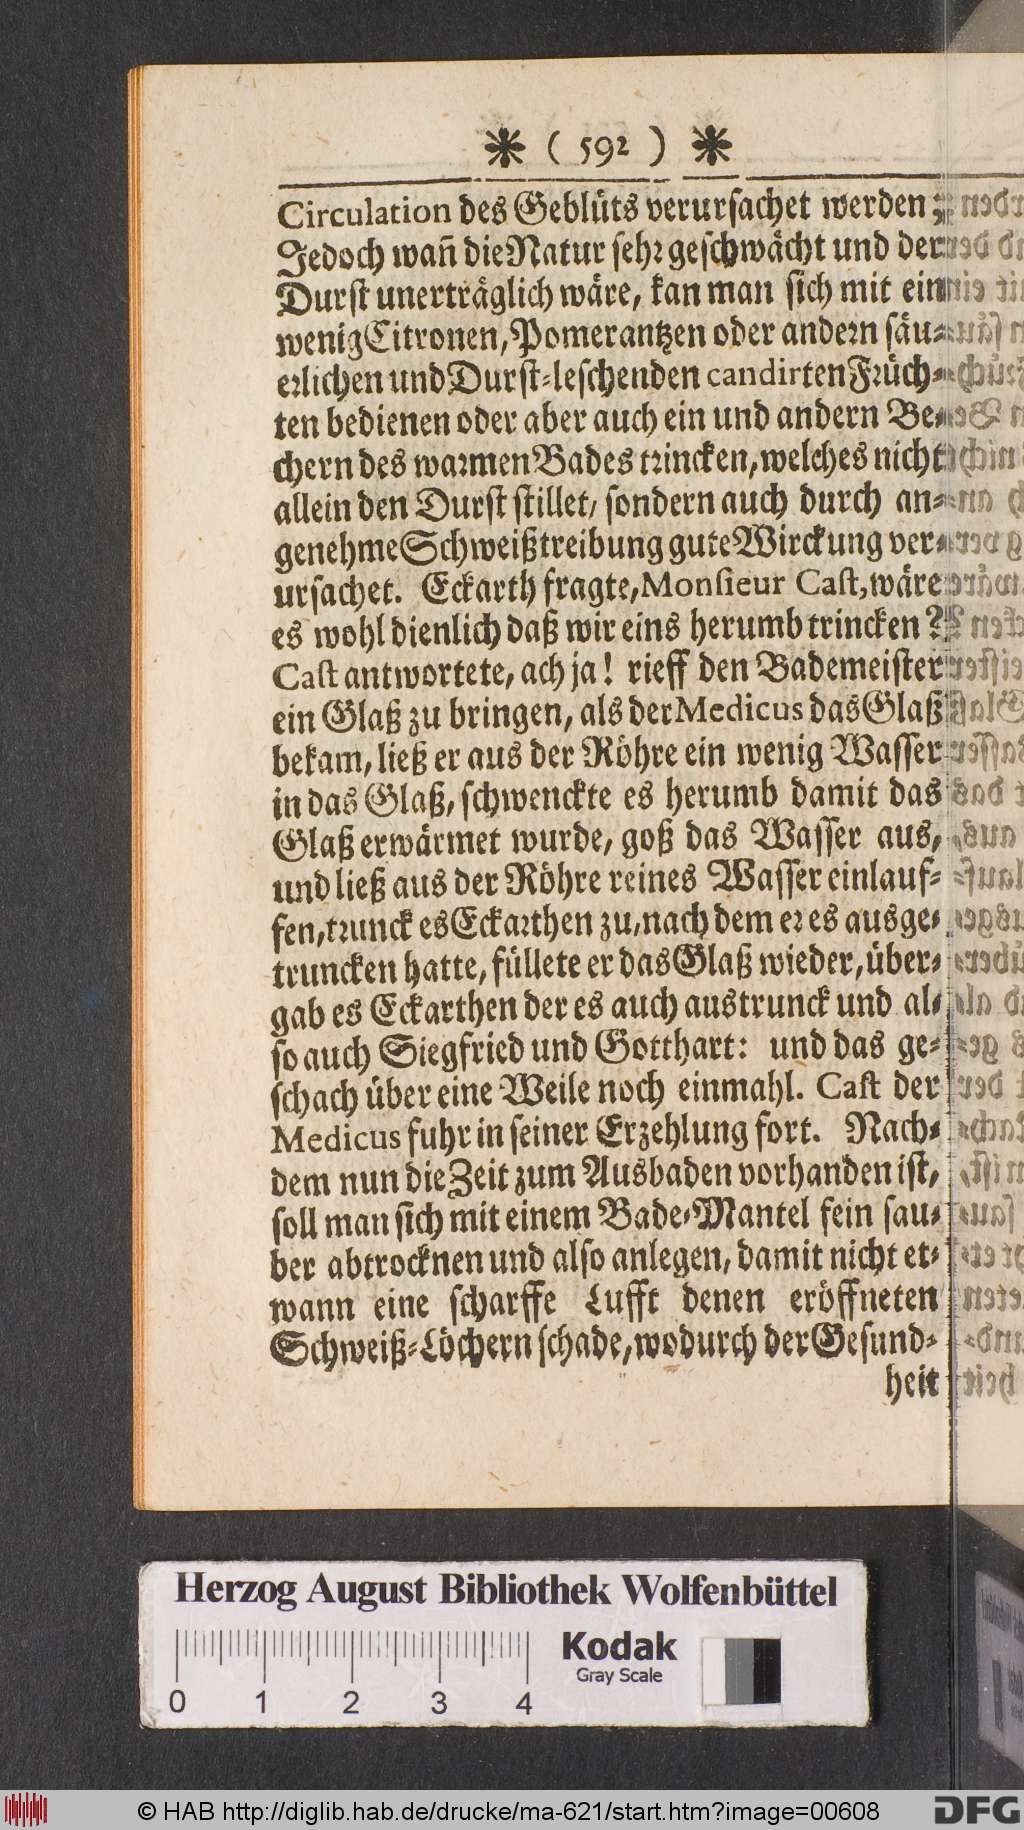 * ( 592 ) *
Circulation des Geblüts verursachet werden;
Jedoch wañ die Natur sehr geschwächt und der
Durst unerträglich wäre, kan man sich mit ein
wenig Citronen, Pomerantzen oder andern säu-
erlichen und Durst-leschenden candirten Früch-
ten bedienen oder aber auch ein und andern Be-
chern des warmen Bades trincken, welches nicht
allein den Durst stillet, sondern auch durch an-
genehme Schweißtreibung gute Wirckung ver-
ursachet. Eckarth fragte, Monsieur Cast, wäre
es wohl dienlich daß wir eins herumb trincken?
Cast antwortete, ach ja! rieff den Bademeister
ein Glaß zu bringen, als der Medicus das Glaß
bekam, ließ er aus der Röhre ein wenig Wasser
in das Glaß, schwenckte es herumb damit das
Glaß erwärmet wurde, goß das Wasser aus,
und ließ aus der Röhre reines Wasser einlauf-
fen, trunck es Eckarthen zu, nach dem er es ausge-
truncken hatte, füllete er das Glaß wieder, über-
gab es Eckarthen der es auch austrunck und al-
so auch Siegfried und Gotthart: und das ge-
schach über eine Weile noch einmahl. Cast der
Medicus fuhr in seiner Erzehlung fort. Nach-
dem nun die Zeit zum Ausbaden vorhanden ist,
soll man sich mit einem Bade-Mantel fein sau-
ber abtrocknen und also anlegen, damit nicht et-
wann eine scharffe Lufft denen eröffneten
Schweiß-Löchern schade, wodurch der Gesund-
heit
Herzog August Bibliothek Wolfenbüttel
Kodak
Gray Scale
0 1 2 3 4
© HAB http://diglib.hab.de/drucke/ma-621/start.htm?image=00608
DFG